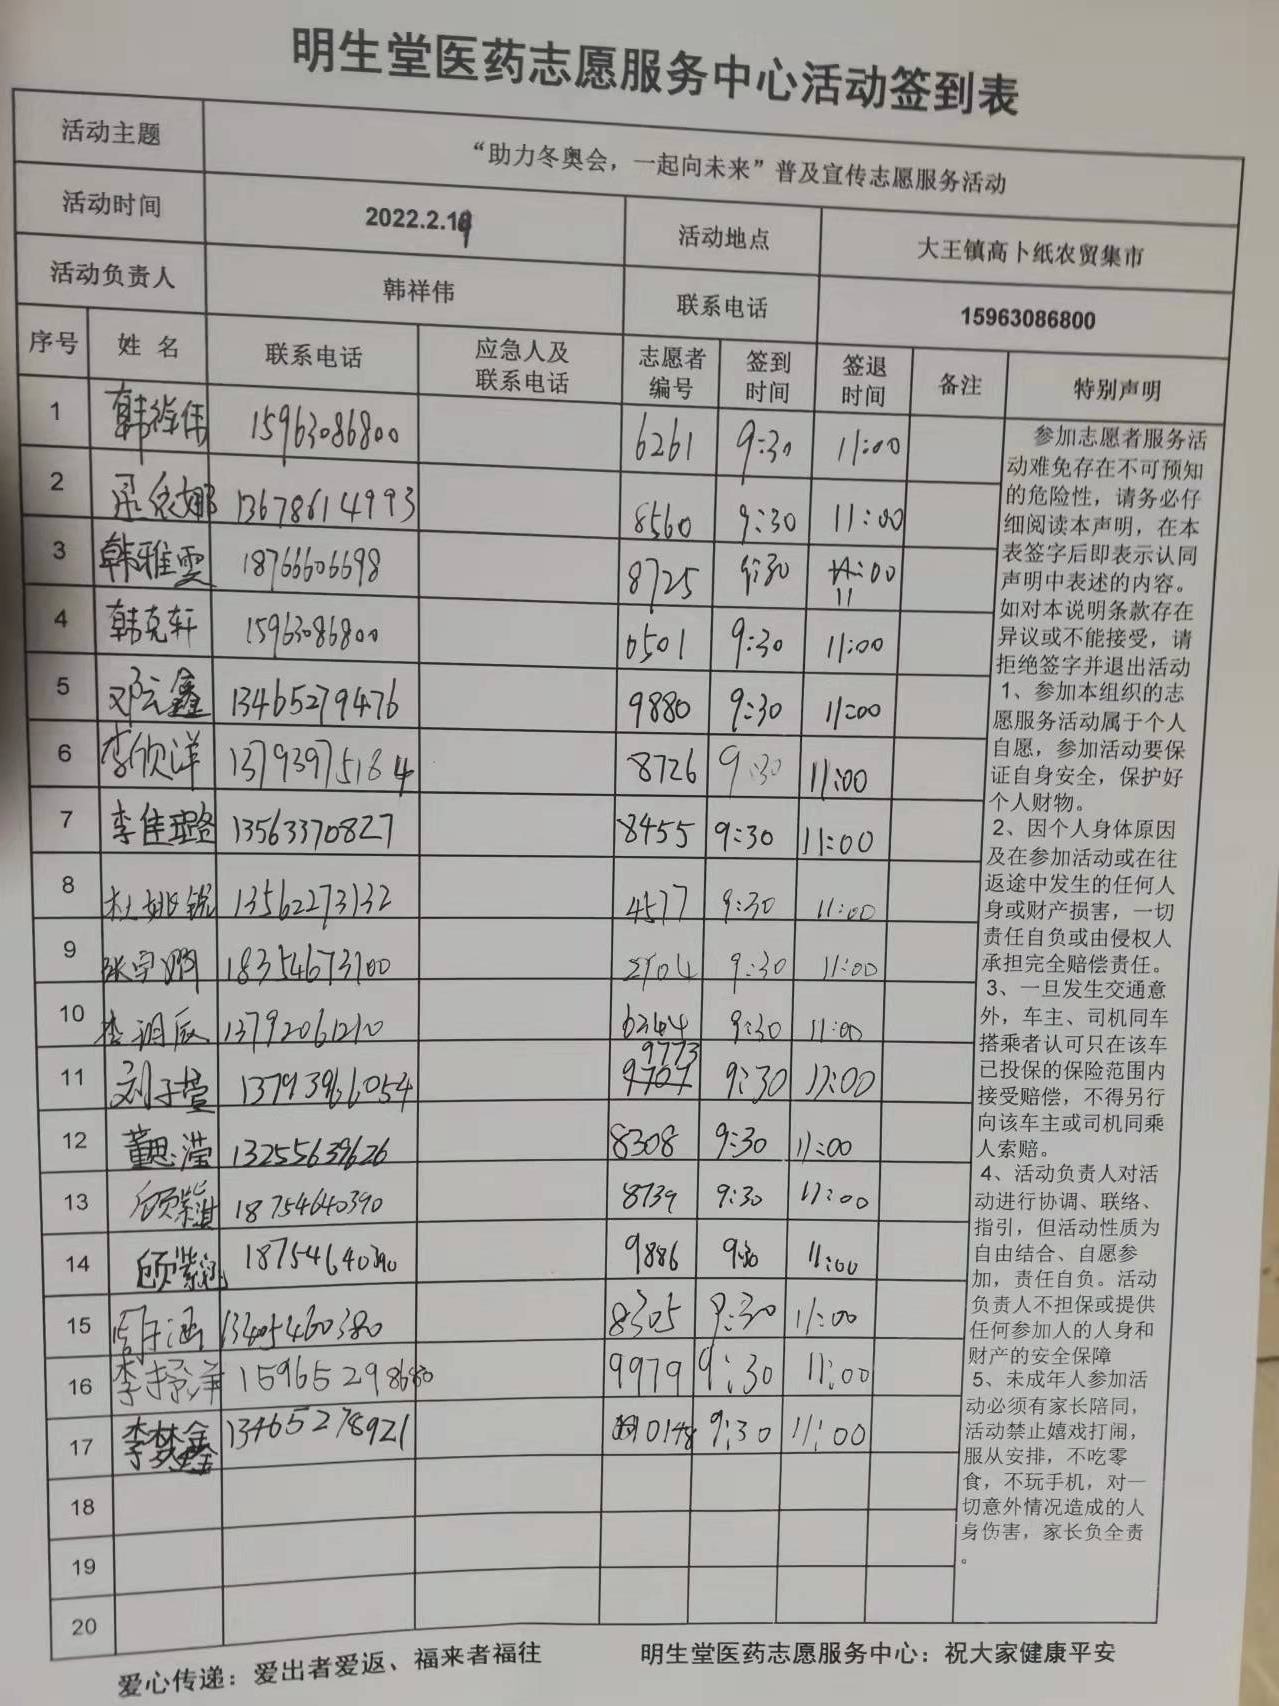 明生堂医药志愿服务中心活动签到表
活动主题 “助力冬奥会，一起向未来”普及宣传志愿服务活动
活动时间 2022.2.19 活动地点 大王镇高卜纸农贸集市
活动负责人 韩祥伟 联系电话 15963086800
序号 姓 名 联系电话 应急人及联系电话 志愿者编号 签到时间 签退时间 备注 特别声明
1 韩祥伟 15963086800 6261 9:30 11:00
2 13678614993 8560 9:30 11:00
3 韩雅雯 18766606698 8725 9:30 11:00
4 韩克轩 15963086800 0501 9:30 11:00
5 邓云鑫 13465279476 9880 9:30 11:00
6 李欣洋 13793975184 8726 9:30 11:00
7 李佳璐 13563370827 8455 9:30 11:00
8 杜姚锐 13562273132 4577 9:30 11:00
9 张宇 18354673100 2704 9:30 11:00
10 李润辰 13792061210 6344 9:30 11:00
11 刘子萱 13793966054 9773 9:30 11:00
12 董思滢 13255639626 8308 9:30 11:00
13 顾紫淇 18754640390 8739 9:30 11:00
14 顾紫涵 18754640390 9886 9:30 11:00
15 周子涵 13405460380 8305 9:30 11:00
16 李抒洋 15965298680 9979 9:30 11:00
17 李梦鑫 13465278921 0148 9:30 11:00
18
19
20
参加志愿者服务活
动难免存在不可预知
的危险性，请务必仔
细阅读本声明，在本
表签字后即表示认同
声明中表述的内容。
如对本说明条款存在
异议或不能接受，请
拒绝签字并退出活动
1、参加本组织的志
愿服务活动属于个人
自愿，参加活动要保
证自身安全，保护好
个人财物。
2、因个人身体原因
及在参加活动或在往
返途中发生的任何人
身或财产损害，一切
责任自负或由侵权人
承担完全赔偿责任。
3、一旦发生交通意
外，车主、司机同车
搭乘者认可只在该车
已投保的保险范围内
接受赔偿，不得另行
向该车主或司机同乘
人索赔。
4、活动负责人对活
动进行协调、联络、
指引，但活动性质为
自由结合、自愿参
加，责任自负。活动
负责人不担保或提供
任何参加人的人身和
财产的安全保障
5、未成年人参加活
动必须有家长陪同，
活动禁止嬉戏打闹，
服从安排，不吃零
食，不玩手机，对一
切意外情况造成的人
身伤害，家长负全责
。
爱心传递：爱出者爱返、福来者福往 明生堂医药志愿服务中心：祝大家健康平安